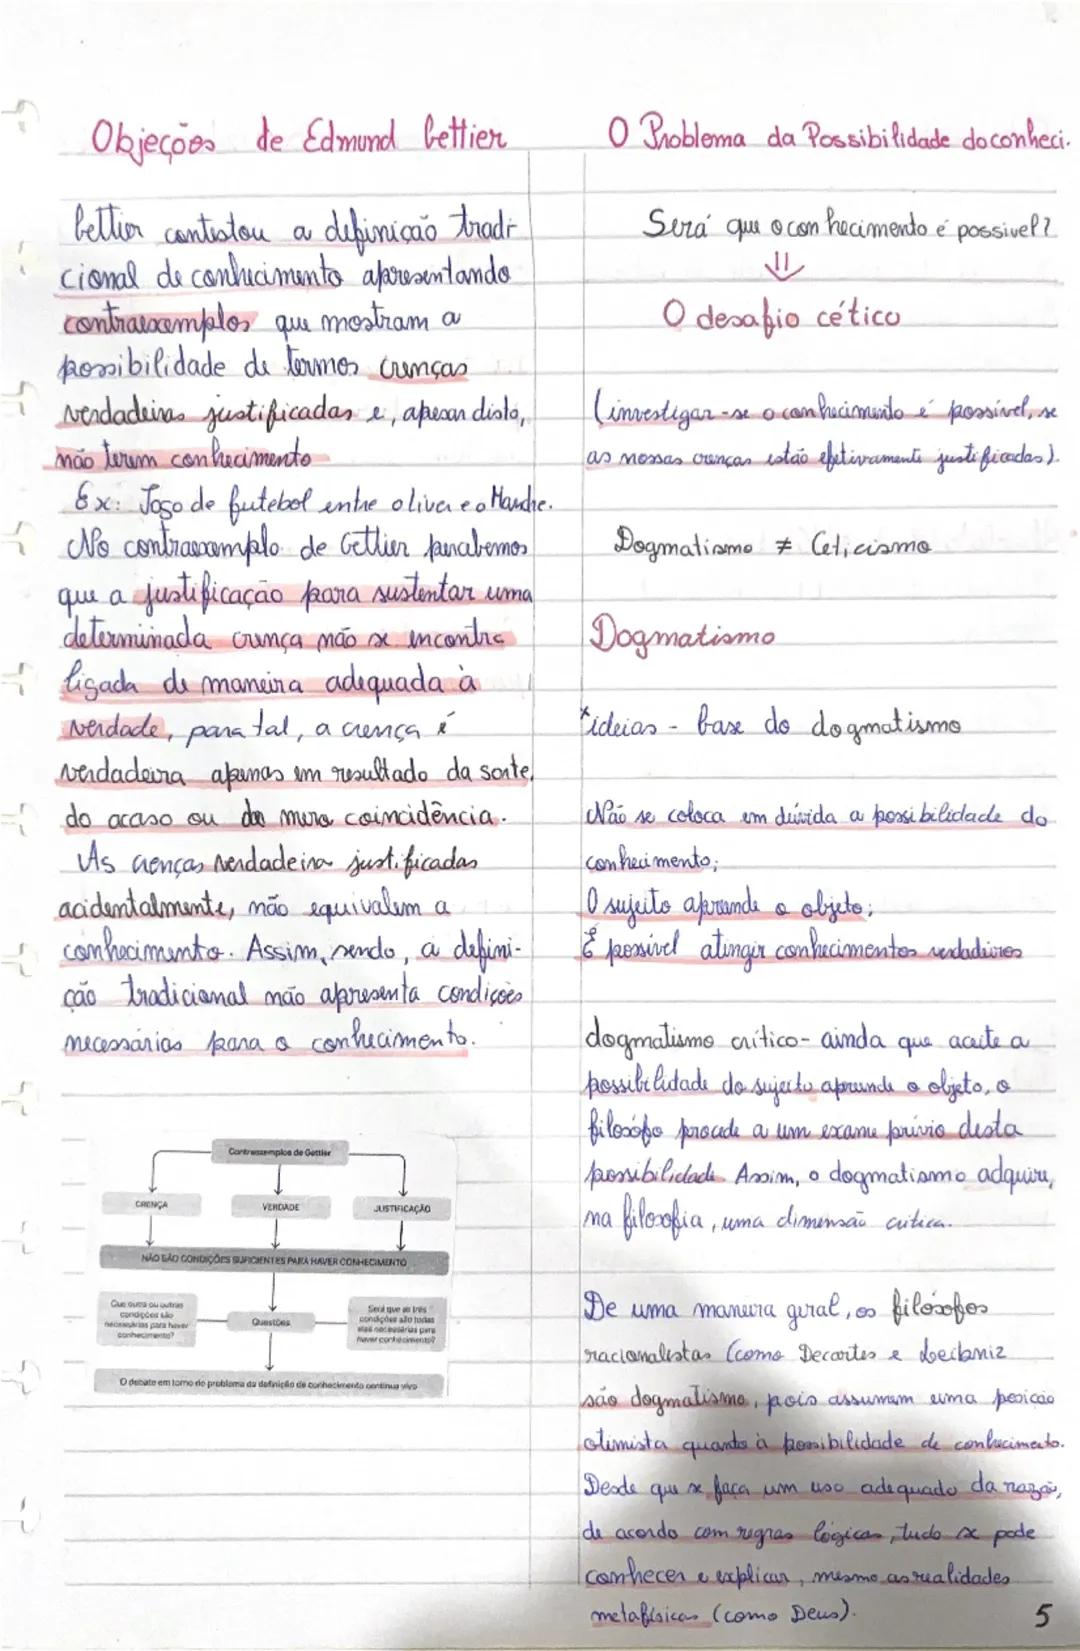 Objeções de Edmund Gettier
Gettier contestou a definição tradi-
cional de conhecimento apresentando
contraexemplos que mostram a
possibilidade de termos crenças
verdadeiras justificadas e, apesar disto,
não terem conhecimento
Ex: Jogo de futebol entre o liva e o
No contraexemplo de Gettier percebemos
que a justificação para sustentar uma
determinada crença não se encontra
ligada de maneira adequada à
verdade, para tal, a crença é
verdadeira apenas em resultado da sorte,
do acaso ou de mera coincidência.
As crenças verdadeira justificadas
acidentalmente, não equivalem a
conhecimento. Assim, sendo, a defini-
ção tradicional não apresenta condições
necessárias para o conhecimento.
Contraexemplos de Gettier
CRENÇA
VERDADE
JUSTIFICAÇÃO
NÃO SÃO CONDIÇÕES SUFICIENTES PARA HAVER CONHECIMENTO
Que outra ou outras
condições são
necessárias para haver
conhecimento?
Questões
Será que as três
condições são todas
elas necessárias para
haver conhecimento?
O debate em torno do problema da definição de conhecimento continua vivo
O Problema da Possibilidade do conheci.
Será que o conhecimento é possivel?
⇓
O desafio cético
(investigar-se o conhecimento é possível, se
as nossas crenças estão efetivamente justificadas).
Dogmatismo ≠ Ceticismo
Dogmatismo
*ideias - base do dogmatismo
Não se coloca em dúvida a possibilidade do
conhecimento;
O sujeito aprende o objeto;
É possível atingir conhecimentos verdadeiros
dogmatismo crítico- ainda que aceite a
possibilidade do sujeito apreende o objeto, o
filosófo procede a um exame prévio desta
possibilidade. Assim, o dogmatismo adquire,
na filosofia, uma dimensão critica.
De uma maneira geral, os filósofos
racionalistas (como Decartes e Leibniz
são dogmatismo, pois assumem uma posição
otimista quanto à possibilidade de conhecimento.
Desde que se faça um uso adequado da razão,
de acordo com regras lógicas, tudo se pode
conhecer e explicar, mesmo as realidades
metafísicas (como Deus).
5